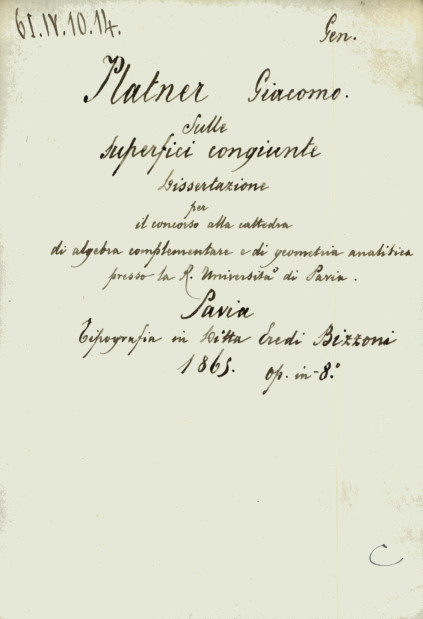 61.IV.10.14.
Gen.
Platner Giacomo.
Sulle
superfici congiunte
Dissertazione
per
il concorso alla cattedra
di algebra complementare e di geometria analitica
presso la R. Università di Pavia.
Pavia
Tipografia in Ditta Eredi Bizzoni
1865. op. in-8.°
C